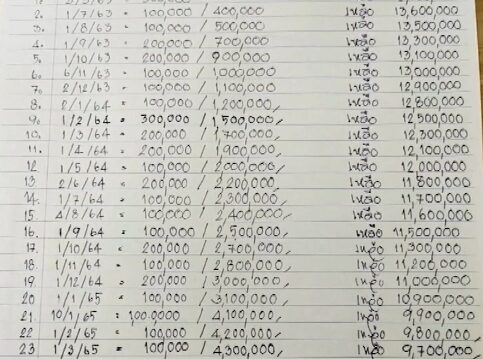 2. 1/7/63 = 100,000 / 400,000 เหลือ 13,600,000
3. 1/8/63 = 100,000 / 500,000 เหลือ 13,500,000
4. 1/9/63 = 200,000 / 700,000 เหลือ 13,300,000
5. 1/10/63 = 200,000 / 900,000 เหลือ 13,100,000
6. 6/11/63 = 100,000 / 1,000,000 เหลือ 13,000,000
7. 2/12/63 = 100,000 / 1,100,000 เหลือ 12,900,000
8. 2/1/64 = 100,000 / 1,200,000 เหลือ 12,800,000
9. 1/2/64 = 300,000 / 1,500,000 เหลือ 12,500,000
10. 1/3/64 = 200,000 / 1,700,000 เหลือ 12,300,000
11. 1/4/64 = 200,000 / 1,900,000 เหลือ 12,100,000
12 1/5/64 = 100,000 / 2,000,000 เหลือ 12,000,000
13 2/6/64 = 200,000 / 2,200,000 เหลือ 11,800,000
14. 1/7/64 = 100,000 / 2,300,000 เหลือ 11,700,000
15 4/8/64 = 100,000 / 2,400,000 เหลือ 11,600,000
16. 1/9/64 = 100,000 / 2,500,000 เหลือ 11,500,000
17. 1/10/64 = 200,000 / 2,700,000 เหลือ 11,300,000
18. 1/11/64 = 100,000 / 2,800,000 เหลือ 11,200,000
19. 1/12/64 = 200,000 / 3,000,000 เหลือ 11,000,000
20 1/1/65 = 100,000 / 3,100,000 เหลือ 10,900,000
21. 10/1/65 = 100.0000 / 4,100,000 เหลือ 9,900,000
22 1/2/65 = 100,000 / 4,200,000 เหลือ 9,800,000
23 1/3/65 = 100,000 / 4,300,000 เหลือ 9,700,000